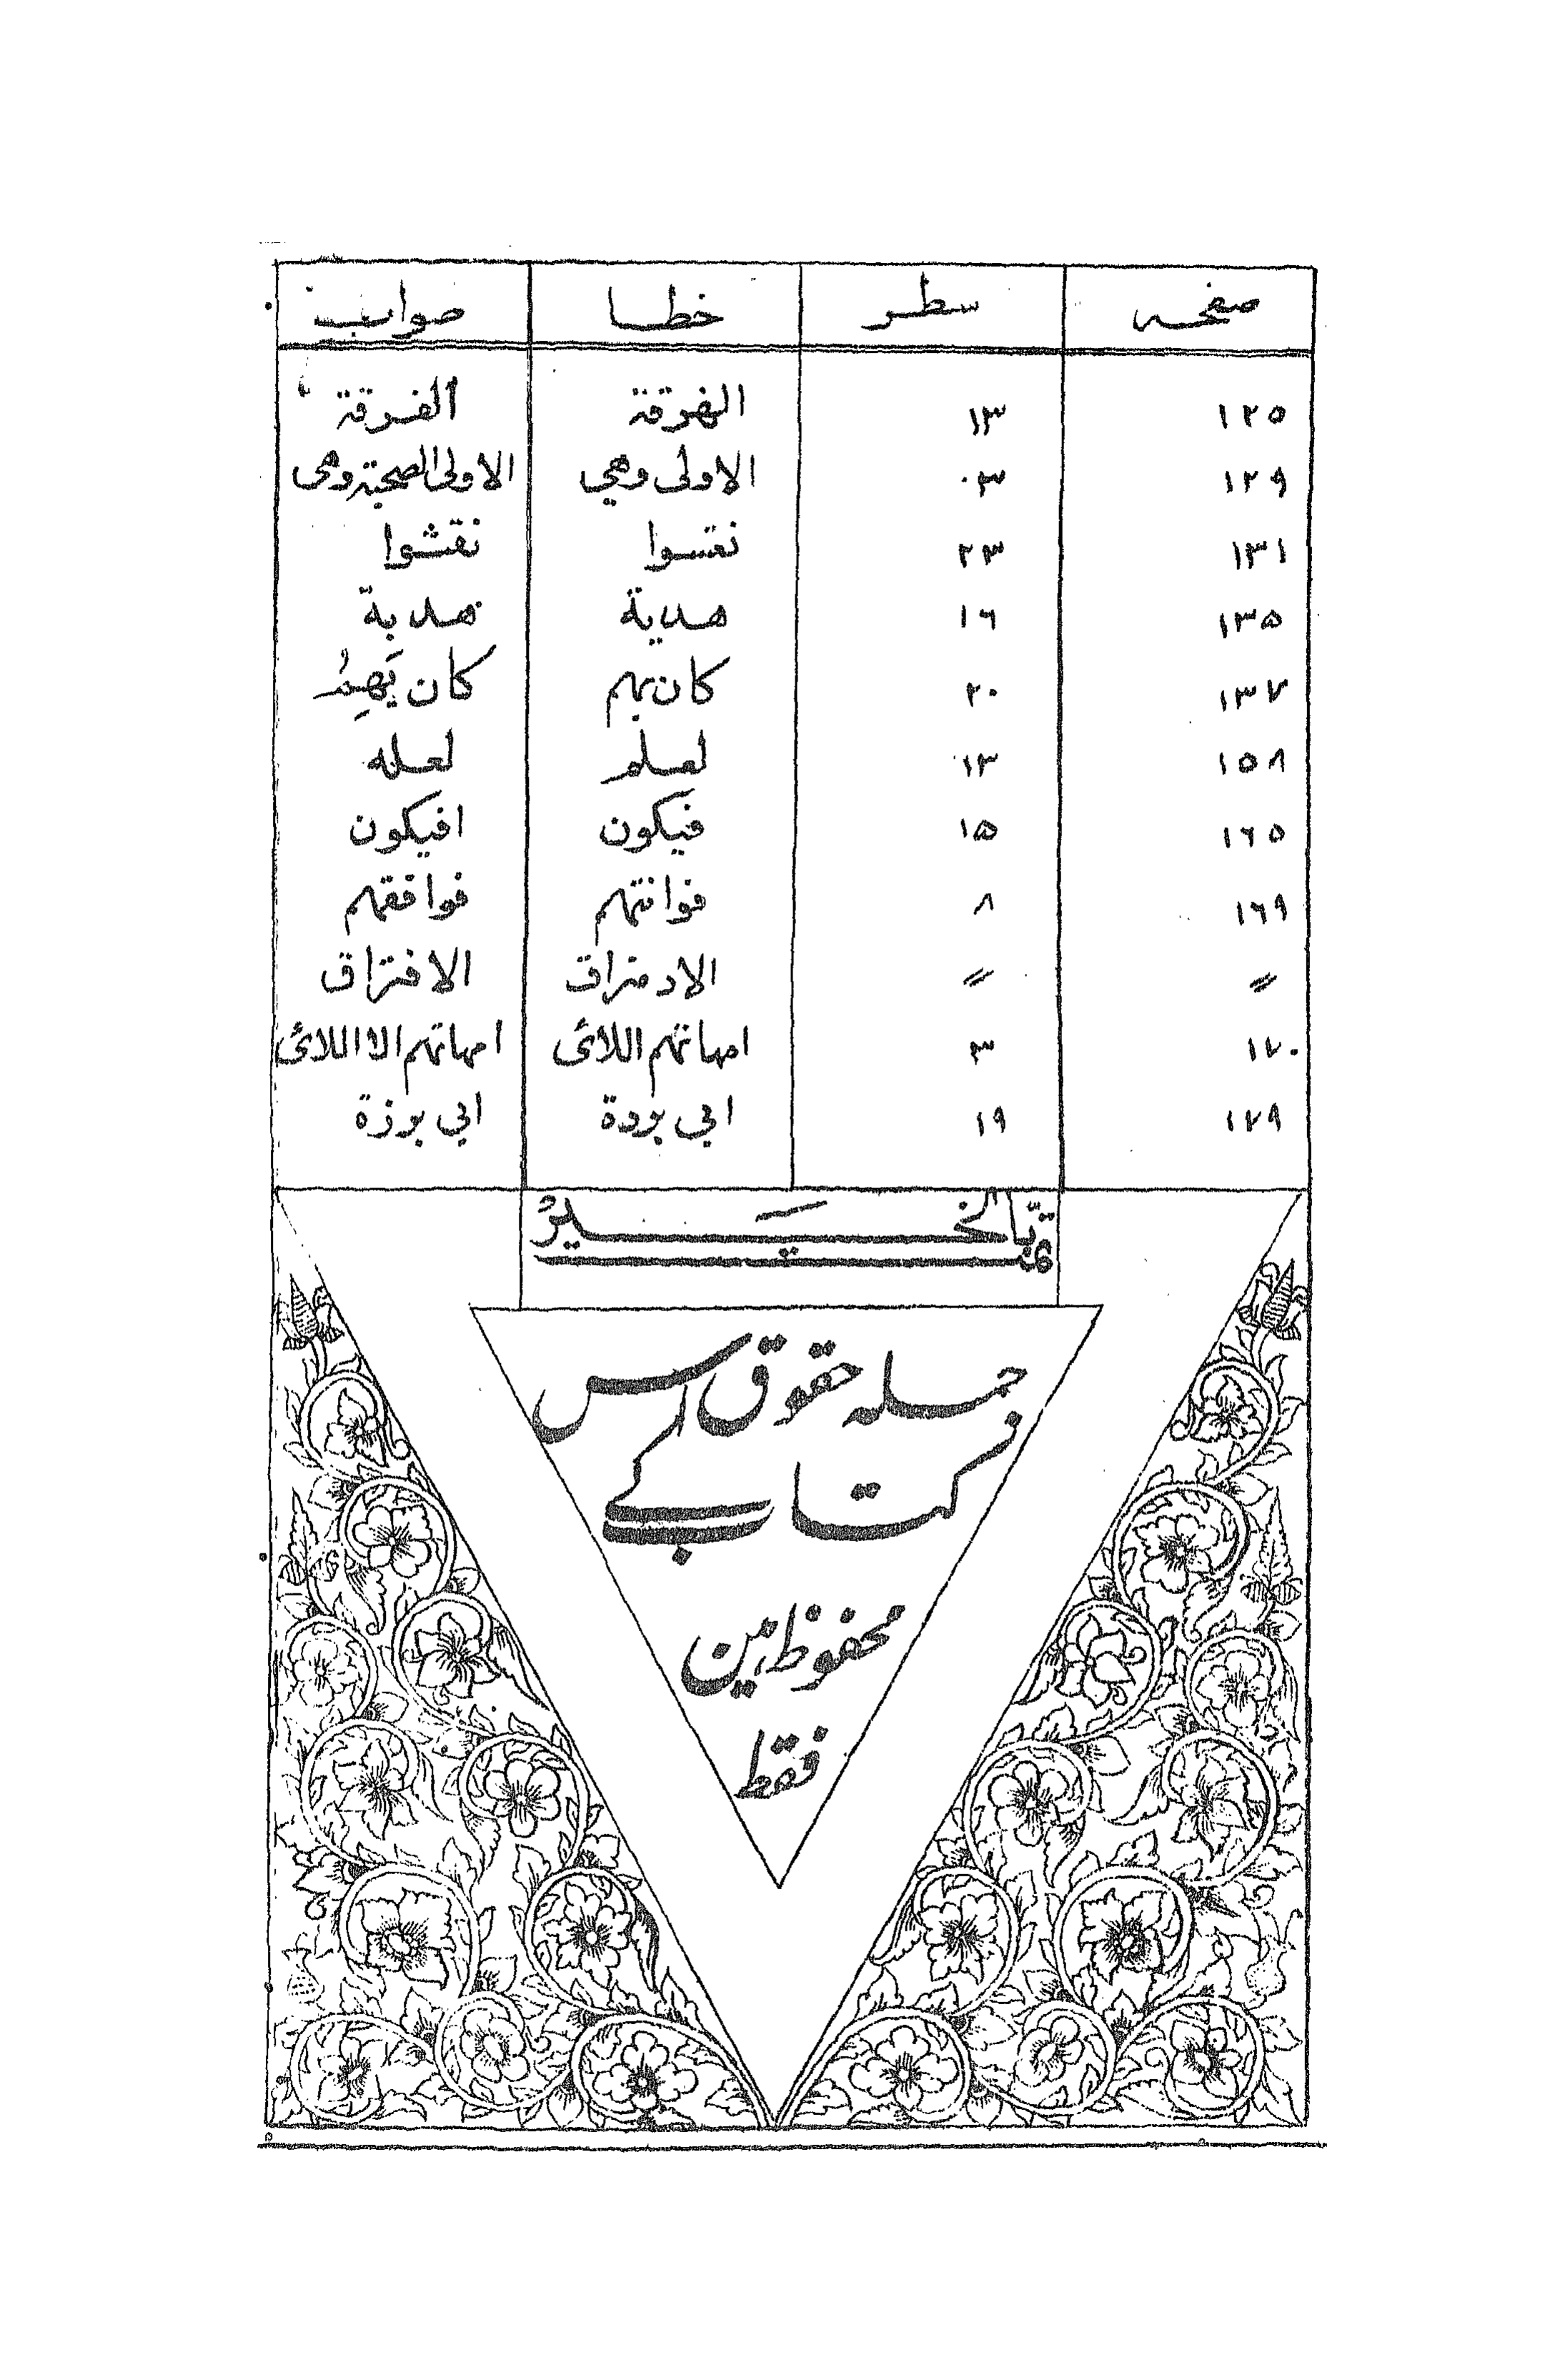 صفحه سطر خطا صواب
١٢٥ ١٣ الهرقة الفرقة
١٢٩ ٠٣ الاولى وهي الاولى الصحية وهى
١٣١ ٢٣ نقسوا نقشوا
١٣٥ ١٦ هداية هدبة
١٣٧ ٢٠ كان بهم كان يَهِمُ
١٥٨ ١٣ لعلم لعله
١٦٥ ١٥ فيكون افيكون
١٦٩ ٨ فوانتهم فوافقهم
〃 〃 الادمتراق الافتراق
١٧٠ ٣ امهاتهم اللائى امهاتهم الا اللائى
١٧٩ ١٩ ابي بردة ابي برزة
تمّ بالخَيرْ
جمله حقوق اس
کتاب کے
محفوظ ہین
فقط